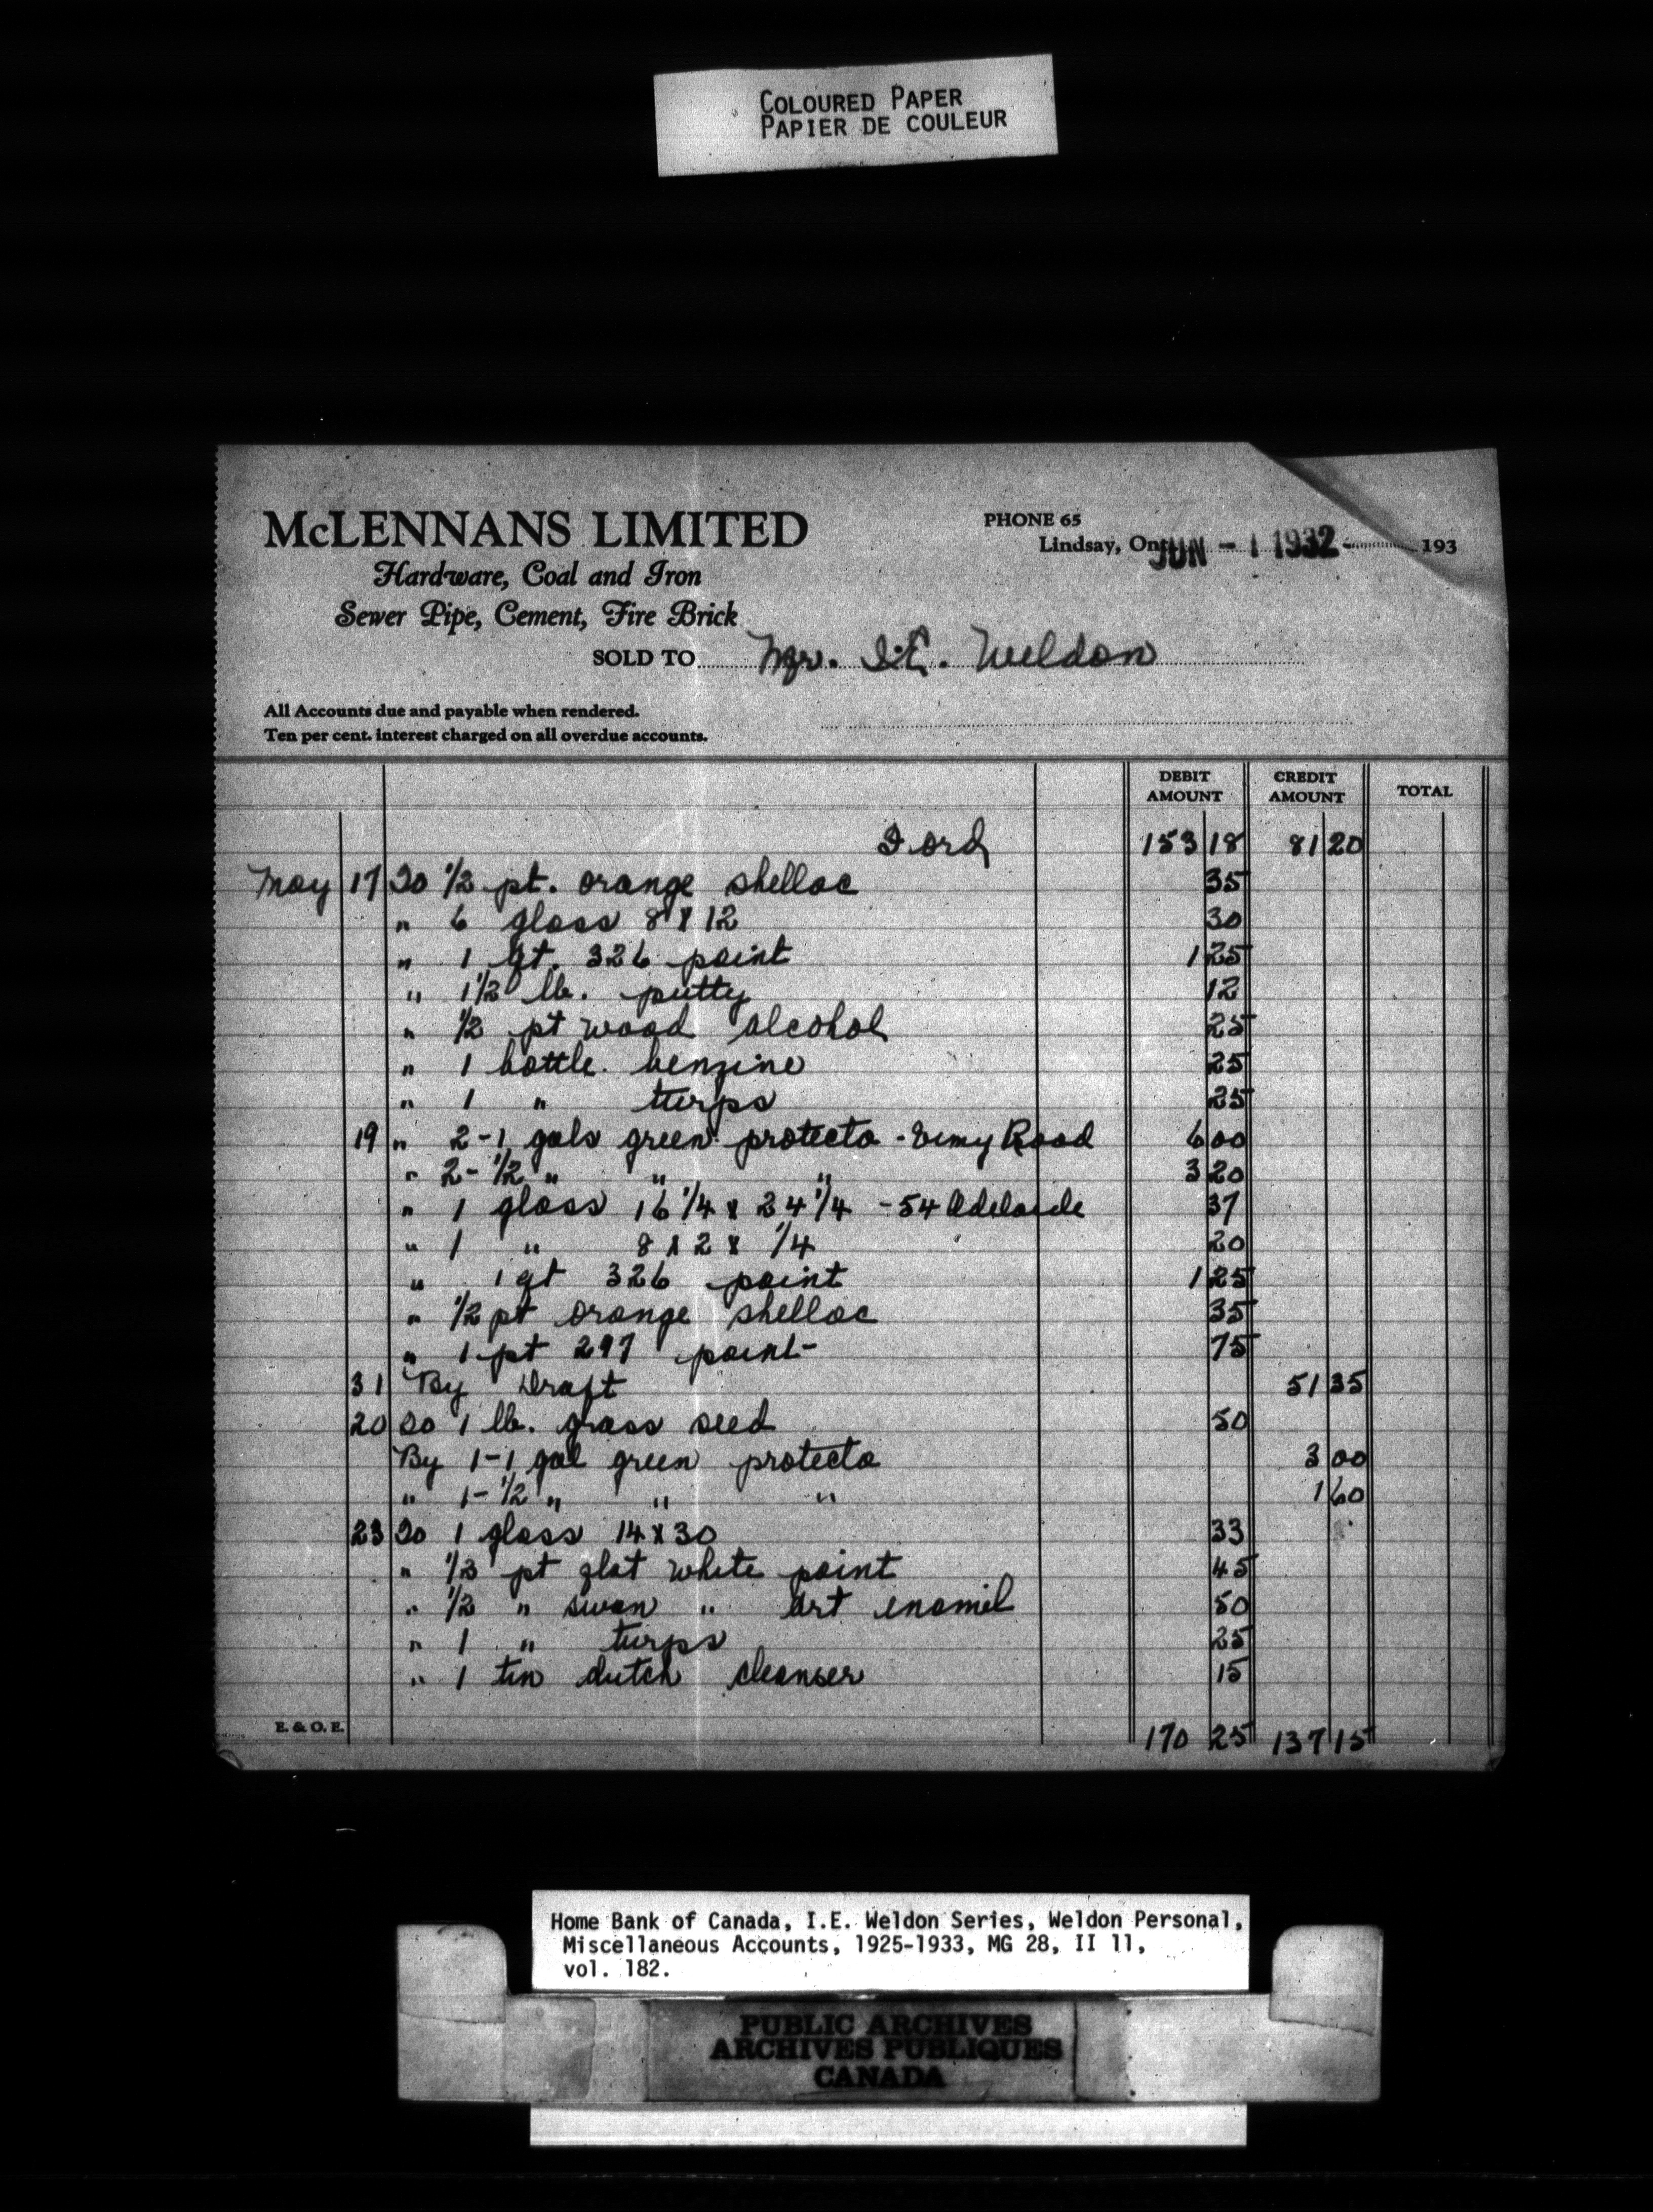 COLOURED PAPER
PAPIER DE COULEUR
McLENNANS LIMITED
Hardware, Coal and Iron
Sewer Pipe, Cement, Fire Brick
PHONE 65
Lindsay, Ont. JUN - 1 1932 193
SOLD TO Mgr. I.E. Weldon
All Accounts due and payable when rendered.
Ten per cent. interest charged on all overdue accounts.
DEBIT AMOUNT CREDIT AMOUNT TOTAL
Ford 153 18 81 20
May 17 To 1/2 pt. orange shellac 35
" 6 glass 8 x 12 30
" 1 qt. 326 paint 1 25
" 1 1/2 lb. putty 12
" 1/2 pt wood alcohol 25
" 1 bottle benzine 25
" 1 " turps 25
19 " 2-1 gals green protecto - Road 6 00
" 2-1/2 " " " 3 20
" 1 glass 16 1/4 x 24 1/4 - 54 Adelaide 37
" 1 " 8 x 2 x 1/4 20
" 1 qt 326 paint 1 25
" 1/2 pt orange shellac 35
" 1 pt 297 paint 75
31 By Draft 51 35
20 To 1 lb. grass seed 50
By 1-1 gal green protecto 3 00
" 1-1/2 " " " 1 60
23 To 1 glass 14 x 30 33
" 1/2 pt flat white paint 45
" 1/2 " swan " art enamil 50
" 1 " turps 25
" 1 tin dutch cleanser 15
E. & O. E. 170 25 137 15
Home Bank of Canada, I.E. Weldon Series, Weldon Personal,
Miscellaneous Accounts, 1925-1933, MG 28, II 11,
vol. 182.
PUBLIC ARCHIVES
ARCHIVES PUBLIQUES
CANADA